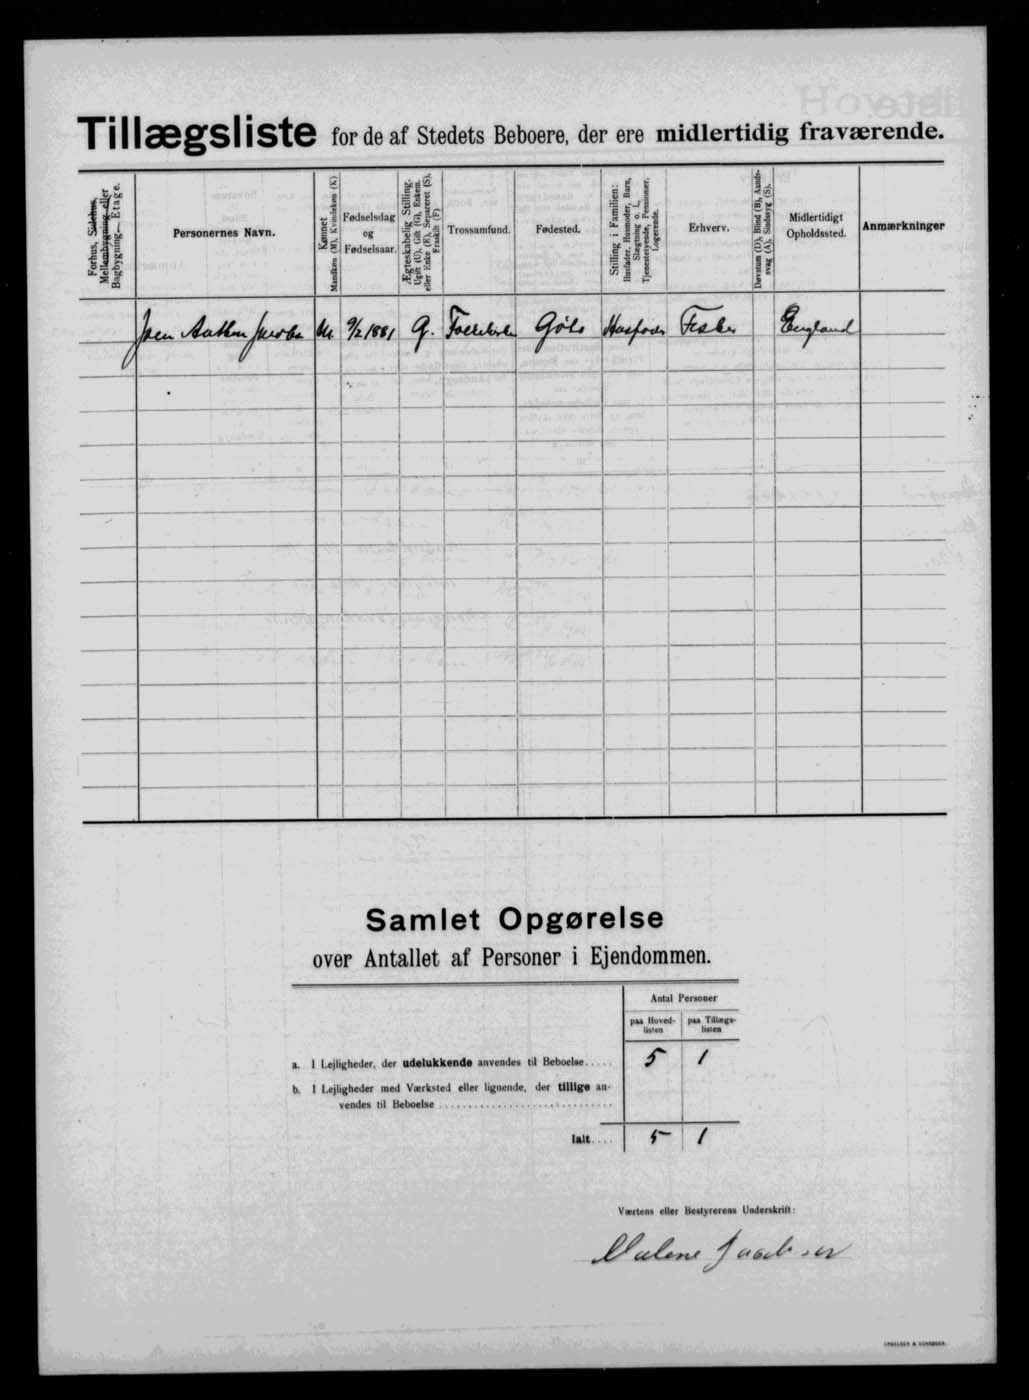 Tillægsliste for de af Stedets Beboere, der ere midlertidig fraværende.
Forhus, Sidehus, Mellembygning eller Bagbygning. — Etage.
Personernes Navn.
Kønnet Mandkøn (M), Kvindekøn (K)
Fødselsdag og Fødselsaar.
Ægteskabelig Stilling. Ugift (U), Gift (G), Enkem. eller Enke (E), Separeret (S), Fraskilt (F)
Trossamfund.
Fødested.
Stilling i Familien: Husfader, Husmoder, Barn, Slægtning o. l., Tjenestetyende, Pensionær, Logerende.
Erhverv.
Døvstum (D), Blind (B), Aandssvag (A), Sindssyg (S).
Midlertidigt Opholdssted.
Anmærkninger
M. 9/2 1881 G. Husfader Fisker England
Samlet Opgørelse
over Antallet af Personer i Ejendommen.
Antal Personer
paa Hovedlisten paa Tillægslisten
a. I Lejligheder, der udelukkende anvendes til Beboelse..... 5 1
b. I Lejligheder med Værksted eller lignende, der tillige an-
vendes til Beboelse
Ialt.... 5 1
Værtens eller Bestyrerens Underskrift:
Malene Jacobsen